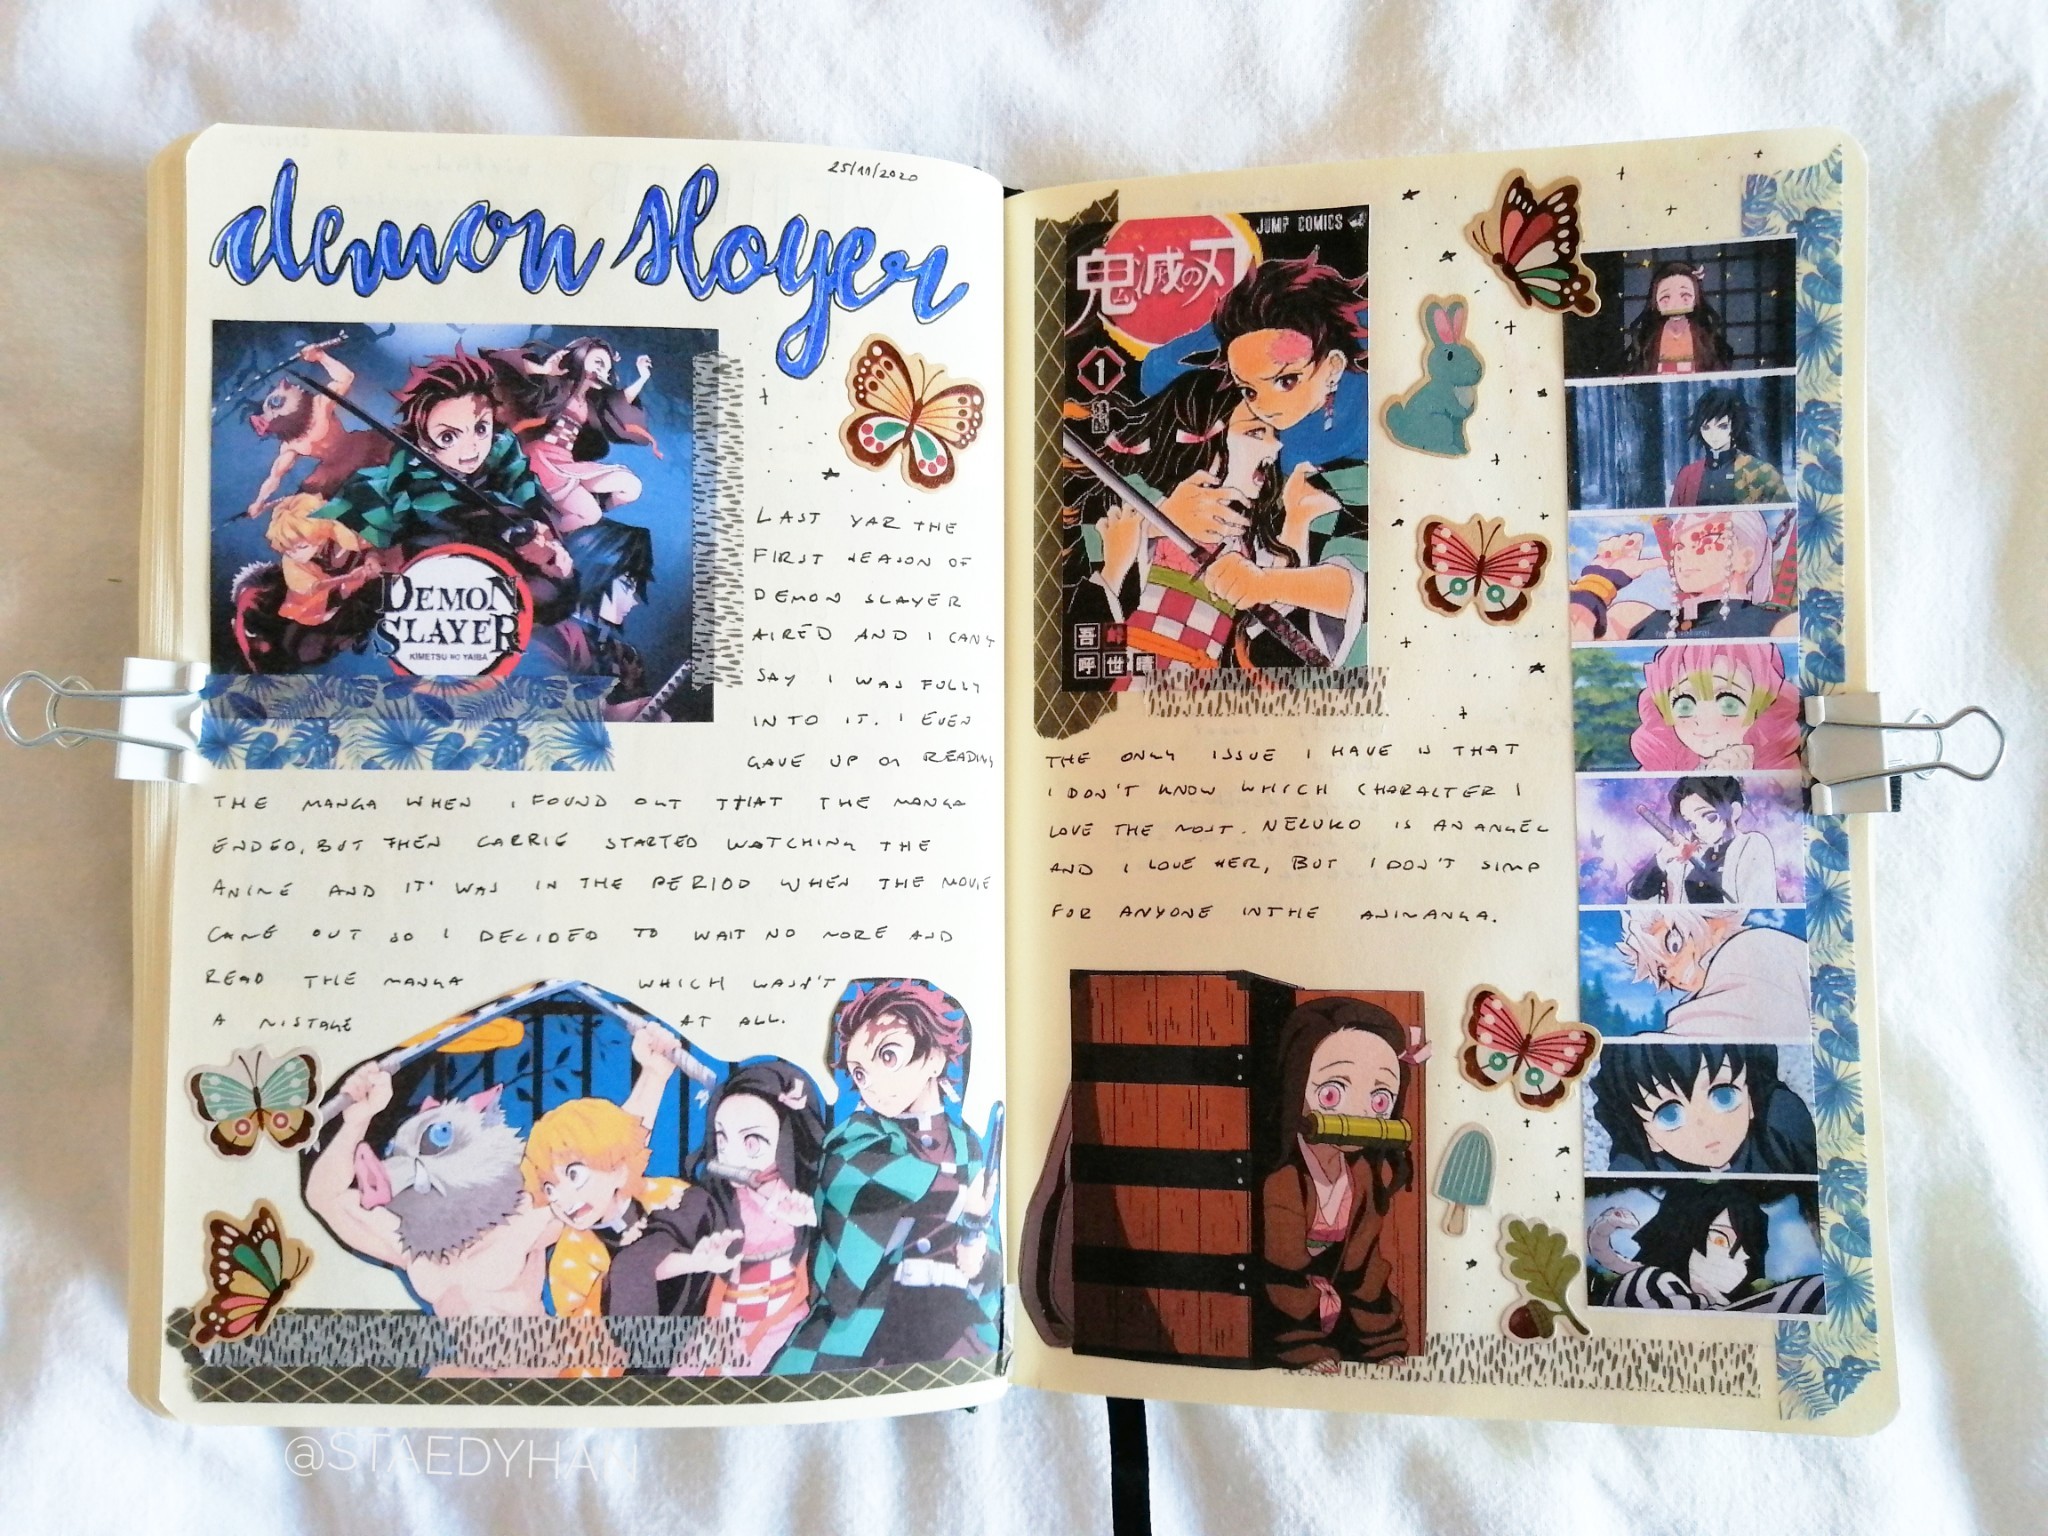 25/11/2020
demon slayer
DEMON
SLAYER
KIMETSU NO YAIBA
LAST YAR THE
FIRST SEASON OF
DEMON SLAYER
AIRED AND I CAN'T
SAY I WAS FULLY
INTO IT. I EVEN
GAVE UP ON READING
THE MANGA WHEN I FOUND OUT THAT THE MANGA
ENDED, BUT THEN CARRIE STARTED WATCHING THE
ANIME AND IT WAS IN THE PERIOD WHEN THE MOVIE
CAME OUT SO I DECIDED TO WAIT NO MORE AND
READ THE MANGA WHICH WASN'T
A MISTAKE AT ALL.
JUMP COMICS
鬼滅の刃
1
吾峠
呼世晴
THE ONLY ISSUE I HAVE IS THAT
I DON'T KNOW WHICH CHARACTER I
LOVE THE MOST. NEZUKO IS AN ANGEL
AND I LOVE HER, BUT I DON'T SIMP
FOR ANYONE IN THE ANIMANGA.
@STAEDYHAN